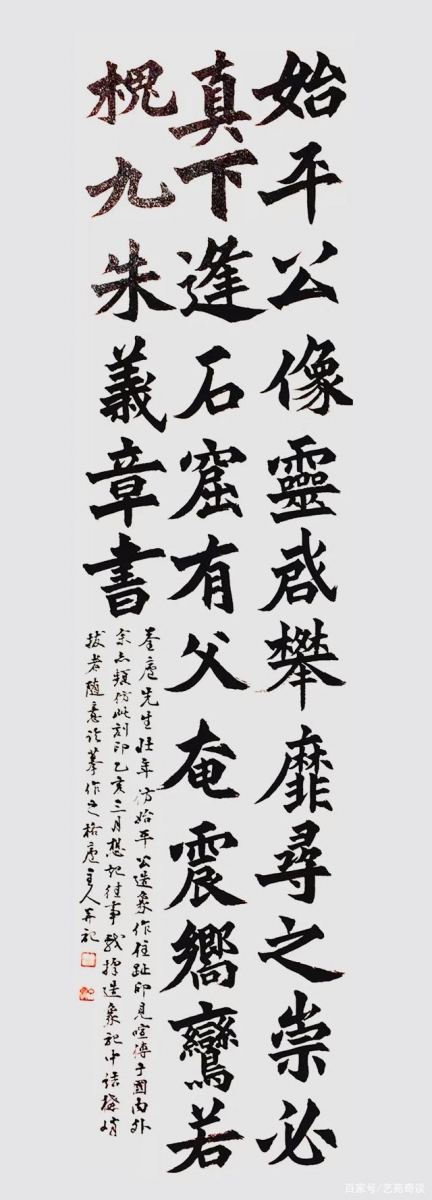 始平公像靈啟攀靡尋之崇必
真下逢石窟有父奄震嚮鸞若
槐九朱義章書
先生壯年仿始平公造象作住趾印見喧傳于國內外
余亦頻仿此刻印乙亥三月想記往事戲擇造象記中結構峭
拔者隨意摹作之格廬主人并記
百家号/艺苑奇谈